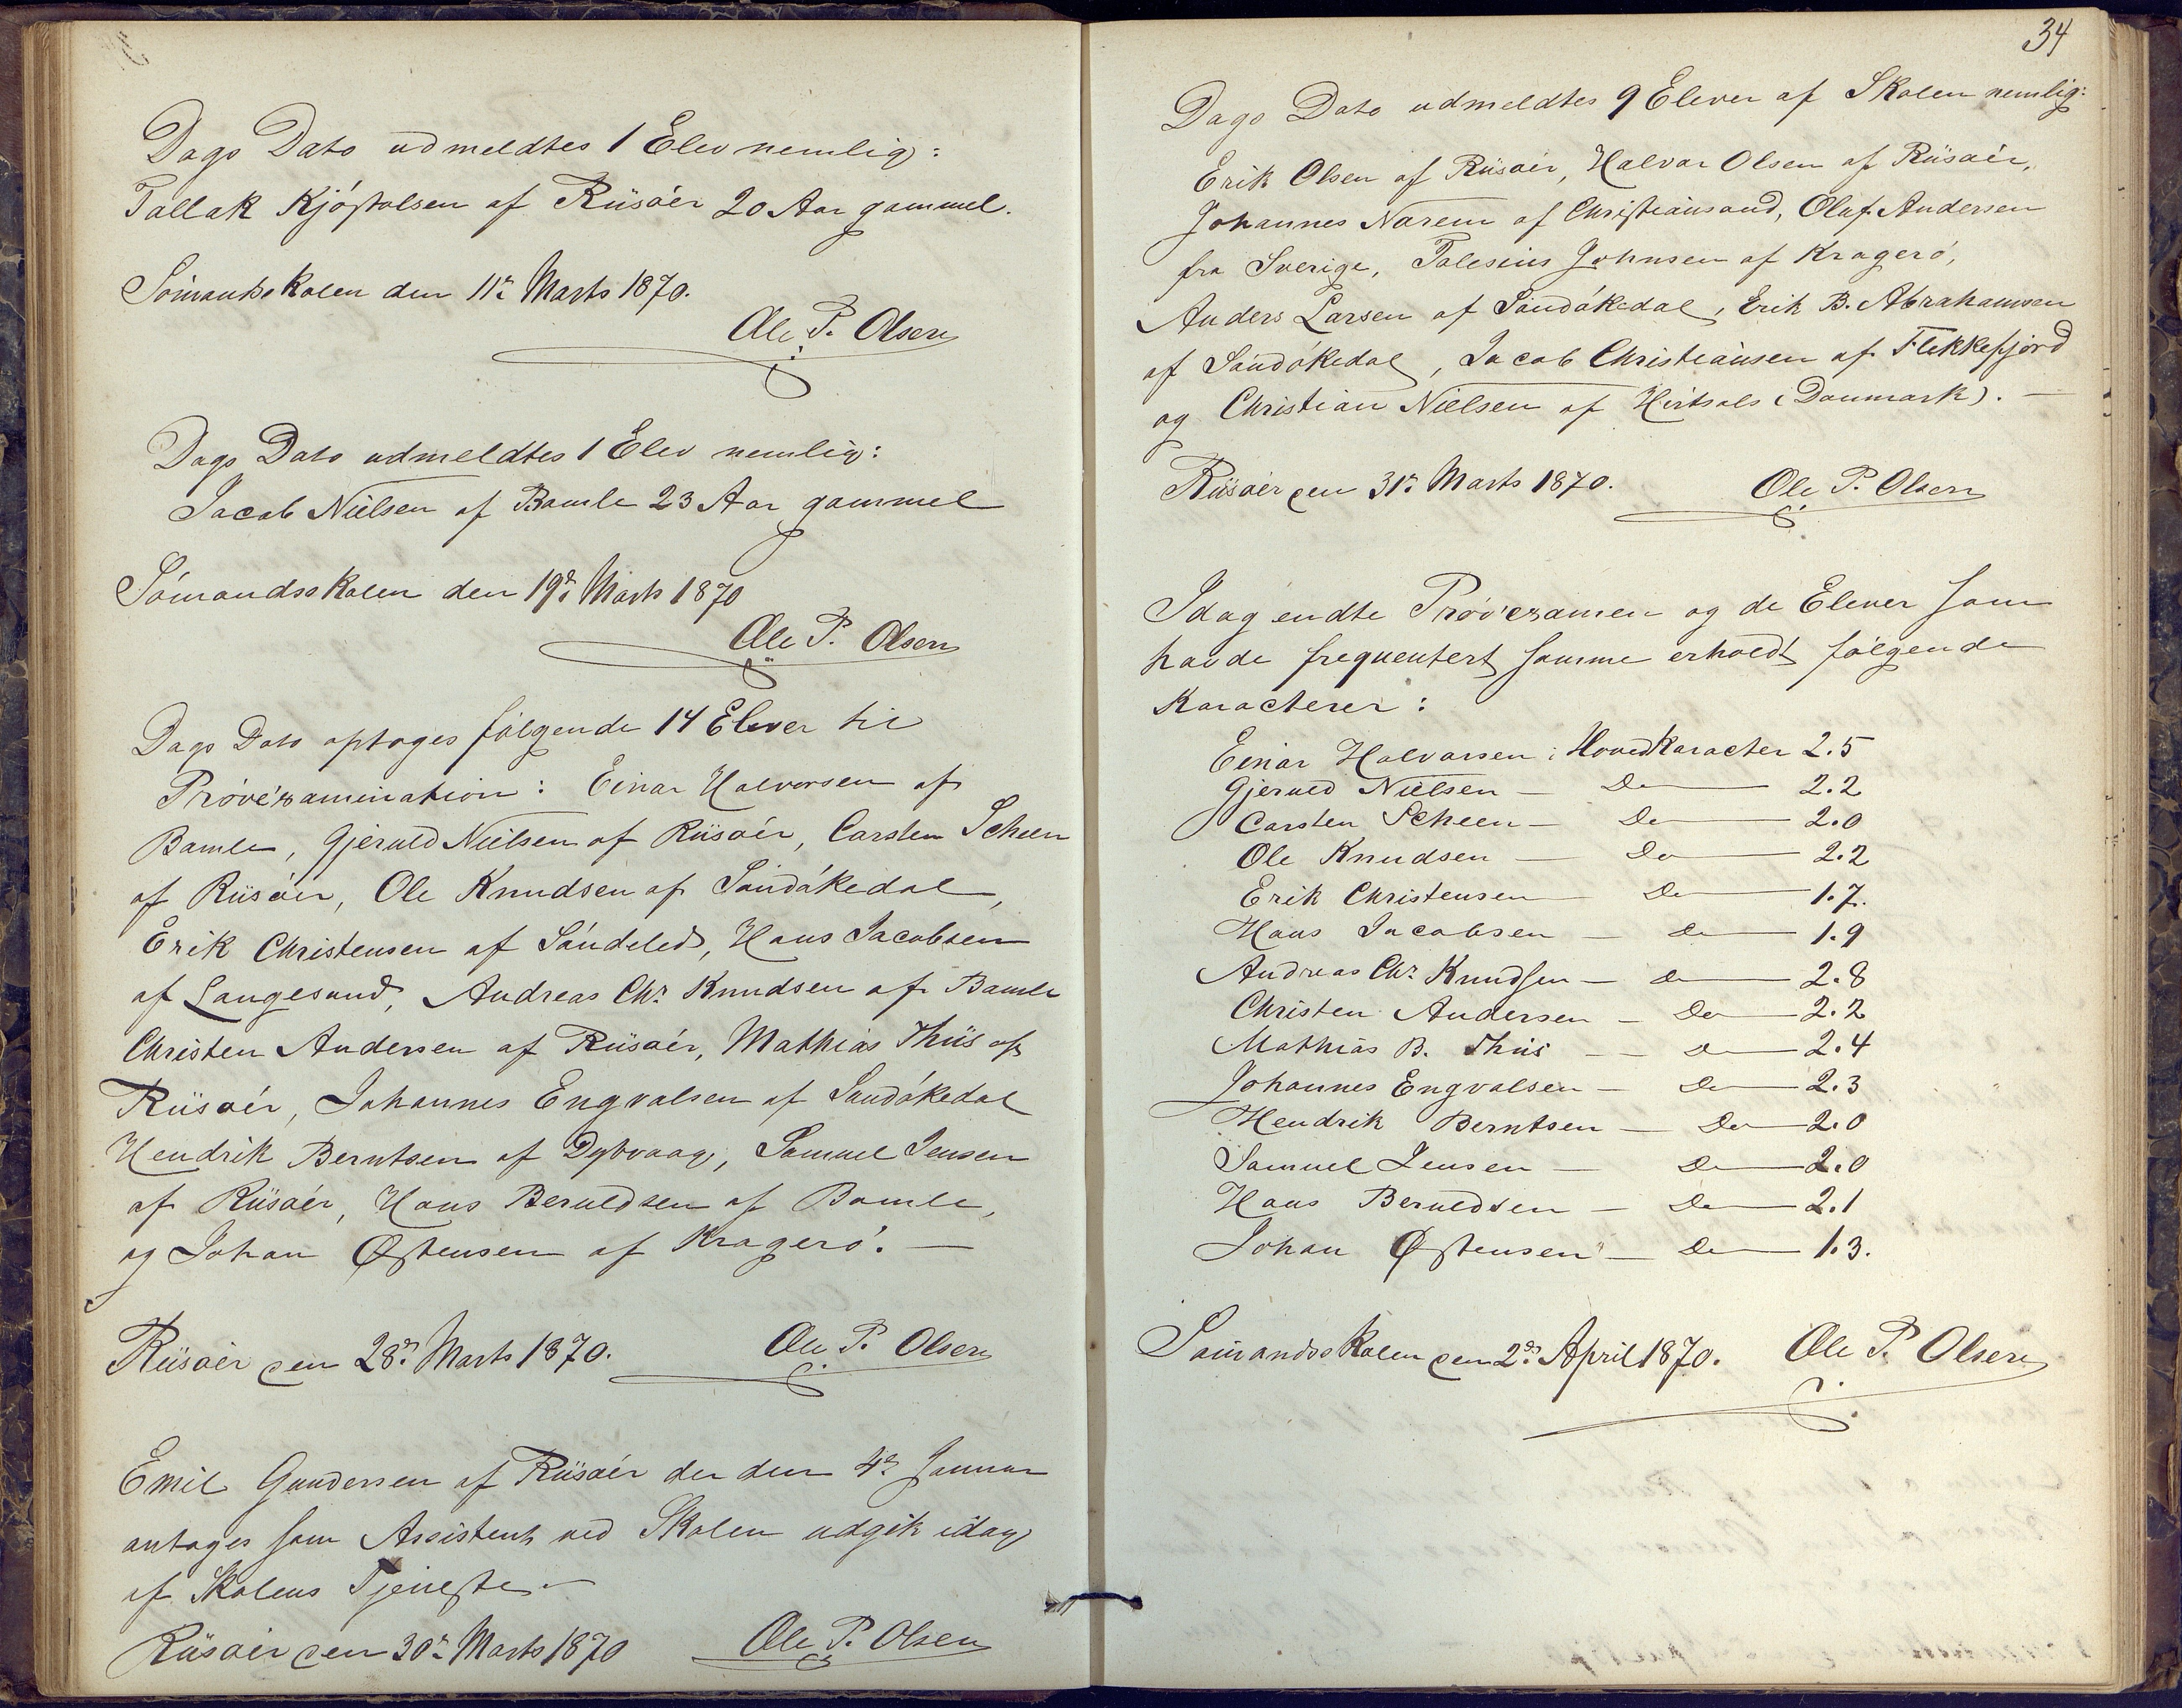 Dags Dato udmeldtes 1 Elev nemlig:
Tallak Kjöstolsen af Riisöer 20 Aar gammel.
Sömandsskolen den 11te Marts 1870.
Ole P. Olsen
Dags Dato udmeldtes 1 Elev nemlig:
Jacob Nielsen af Bamle 23 Aar gammel
Sömandsskolen den 19de Marts 1870
Ole P. Olsen
Dags Dato optoges fölgende 14 Elever til
Pröveexamination: Einar Halvorsen af
Bamle, Gjeruld Nielsen af Riisöer, Carsten Scheen
af Riisöer, Ole Knudsen af Sandökedal,
Erik Christensen af Söndeled, Hans Jacobsen
af Langesund, Andreas Chr. Knudsen af Bamle
Christen Andersen af Riisöer, Mathias Thiis af
Riisöer, Johannes Engvalsen af Sandökedal
Hendrik Berntsen af Dybvaag, Samuel Jensen
af Riisöer, Hans Beruldsen af Bamle,
og Johan Østensen af Kragerö. —
Riisöer den 28de Marts 1870. Ole P. Olsen
Emil Gundersen af Riisöer der den 4de Januar
antoges som Assistent ved Skolen udgik idag
af Skolens Tjeneste. —
Riisöer den 30te Marts 1870 Ole P. Olsen
34
Dags Dato udmeldtes 9 Elever af Skolen nemlig:
Erik Olsen af Riisöer, Halvor Olsen af Riisöer,
Johannes Narem af Christiansand, Olaf Andersen
fra Sverige, Talesius Johnsen af Kragerö,
Anders Larsen af Sandökedal, Erik B. Abrahamsen
af Sandökedal, Jacob Christiansen af Flekkefjord
og Christian Nielsen af Hirtsals (Danmark). —
Riisöer den 31te Marts 1870. Ole P. Olsen
Idag endte Pröveexamen og de Elever som
havde frequentert samme erholdt fölgende
Karacterer:
Einar Halvorsen: Hovedkaracter 2.5
Gjeruld Nielsen — Do — 2.2
Carsten Scheen — Do — 2.0
Ole Knudsen — Do — 2.2
Erik Christensen — Do — 1.7.
Hans Jacobsen — Do — 1.9
Andreas Chr. Knudsen — Do — 2.8
Christen Andersen — Do — 2.2
Mathias B. Thiis — — Do — 2.4
Johannes Engvalsen — Do — 2.3
Hendrik Berntsen — Do — 2.0
Samuel Jensen — Do — 2.0
Hans Beruldsen — Do — 2.1
Johan Østensen — Do — 1.3.
Sömandsskolen den 2den April 1870. Ole P. Olsen